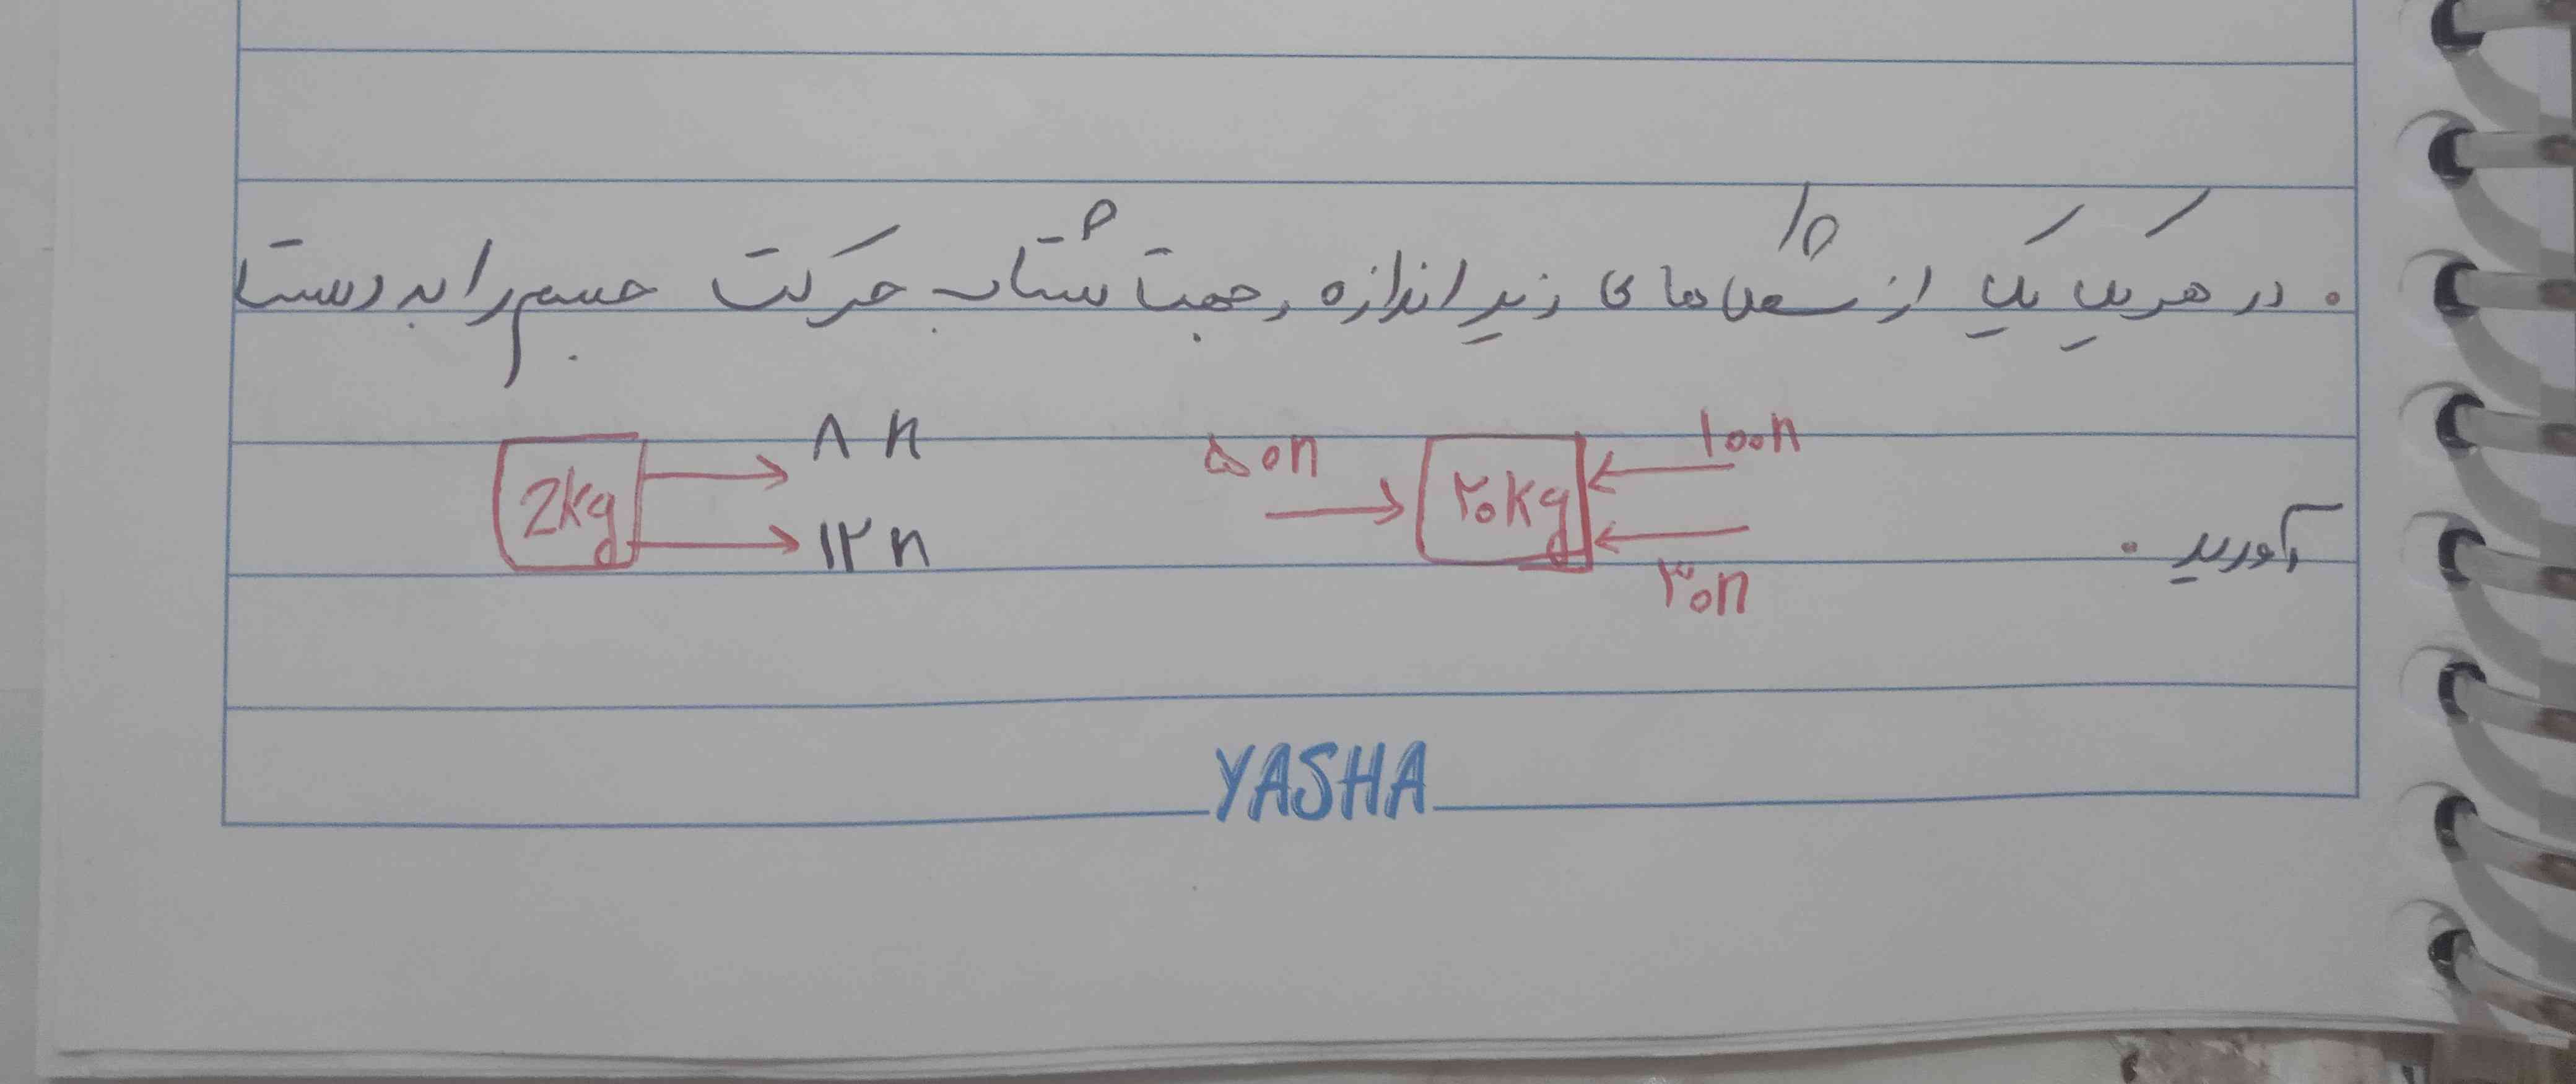 . در هر یک یک از شکل های زیر اندازه و جهت شتاب حرکت جسم را به دست
آورید .
۱۰۰n
۲۰kg
۵۰n
۳۰n
۸n
2kg
۱۲n
YASHA